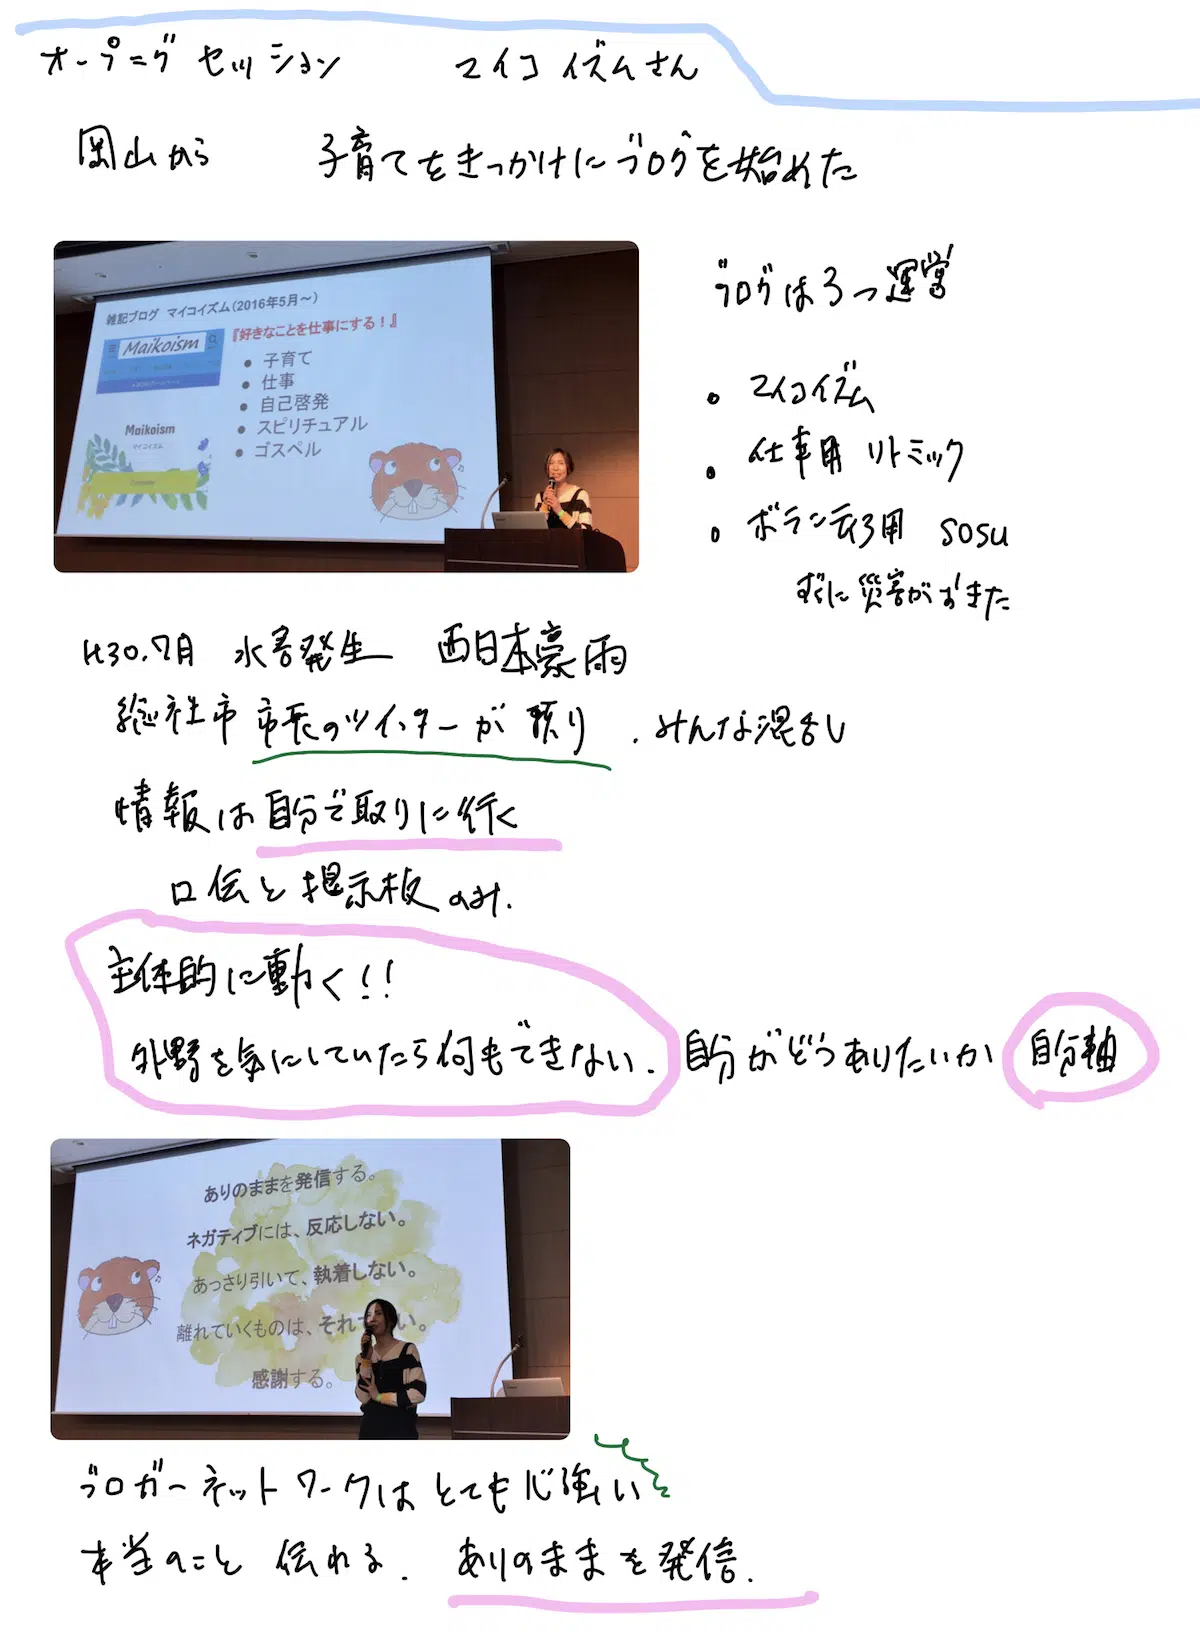 オープニグセッション マイコイズムさん
岡山から 子育てをきっかけにブログを始めた
雑記ブログ マイコイズム(2016年5月～)
Maikoism
『好きなことを仕事にする！』
● 子育て
● 仕事
● 自己啓発
● スピリチュアル
● ゴスペル
Maikoism
マイコイズム
ブログは3つ運営
・マイコイズム
・仕事用 リトミック
・ボランティア用 sosu
すぐに災害がおきた
H30.7月 水害発生 西日本豪雨
総社市 市長のツイッターが頼り．みんな混乱
情報は自分で取りに行く
口伝と掲示板のみ．
主体的に動く!!
外野を気にしていたら何もできない．自分がどうありたいか 自分軸
ありのままを発信する。
ネガティブには、反応しない。
あっさり引いて、執着しない。
離れていくものは、それで い。
感謝する。
ブロガーネットワークはとても心強い
本当のこと 伝れる．ありのままを発信．